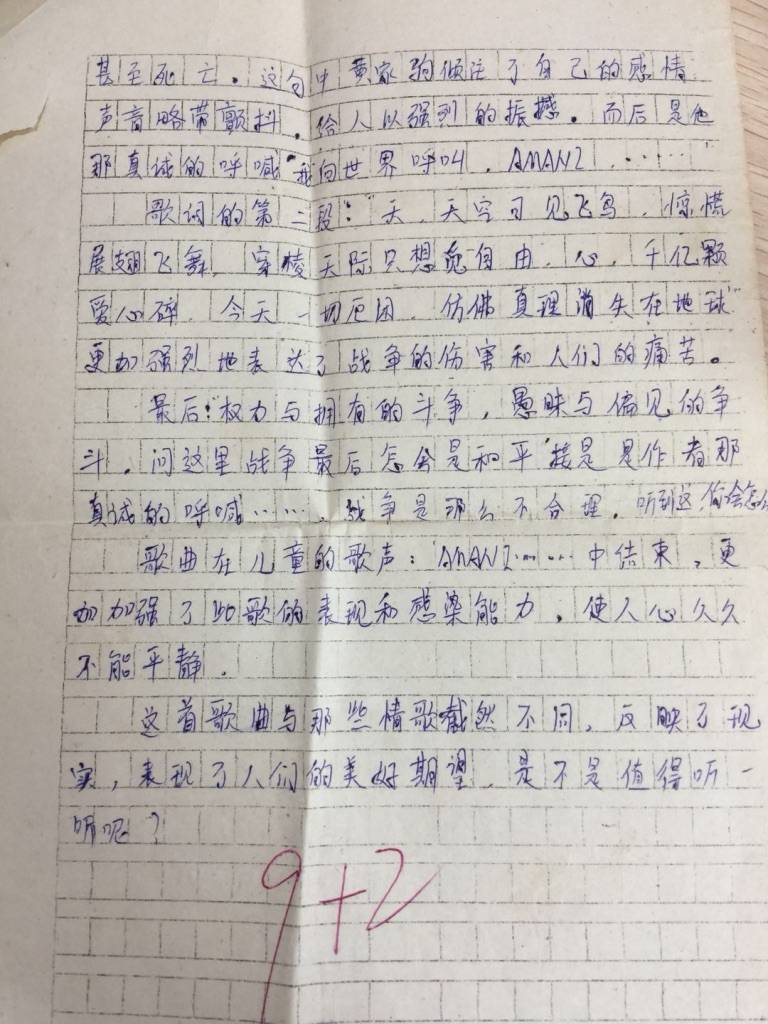 甚至死亡。这句中黄家驹倾注了自己的感情
声音略带颤抖，给人以强烈的振撼。而后是他
那真诚的呼喊"我向世界呼叫，AMANI……
歌词的第二段："天，天空可见飞鸟，惊慌
展翅飞舞，穿梭天际只想觅自由，心，千亿颗
爱心碎，今天一切厄困，仿佛真理消失在地球"
更加强烈地表达了战争的伤害和人们的痛苦。
最后："权力与拥有的斗争，愚昧与偏见的争
斗，问这里战争最后怎会是和平"接是是作者那
真诚的呼喊……，战争是那么不合理，听到这，你会怎
歌曲在儿童的歌声：AMANI……中结束，更
加加强了此歌的表现和感染能力，使人心久久
不能平静。
这首歌曲与那些情歌截然不同，反映了现
实，表现了人们的美好期望，是不是值得听一
听呢？
9+2